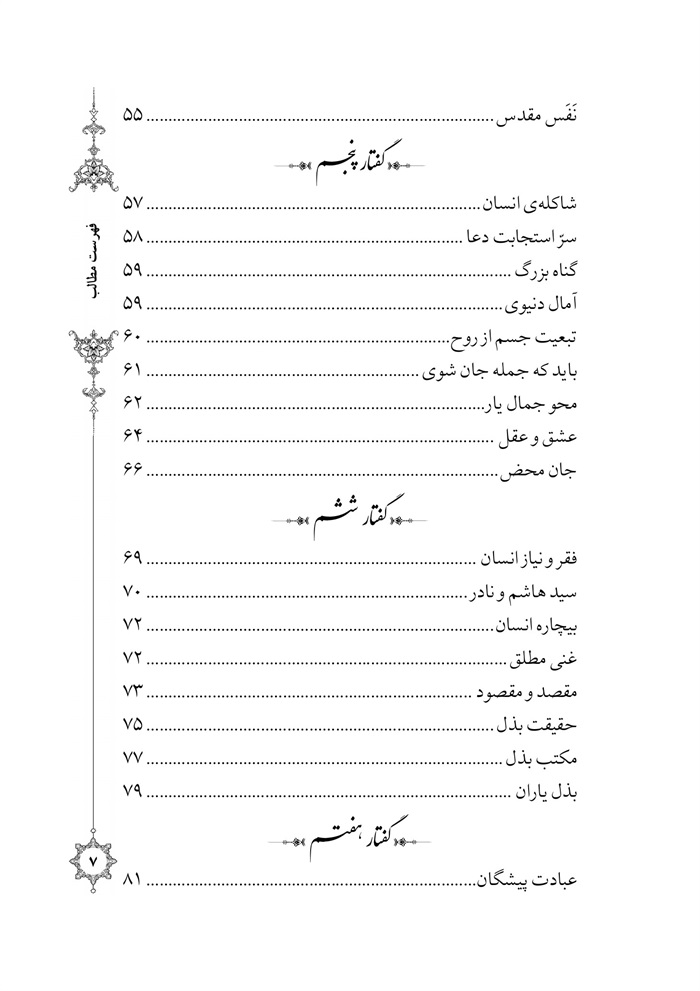 نَفَس مقدس ........ ۵۵
گفتار پنجم
شاکله‌ی انسان ........ ۵۷
سرّ استجابت دعا ........ ۵۸
گناه بزرگ ........ ۵۹
آمال دنیوی ........ ۵۹
تبعیت جسم از روح ........ ۶۰
باید که جمله جان شوی ........ ۶۱
محو جمال یار ........ ۶۲
عشق و عقل ........ ۶۴
جان محض ........ ۶۶
گفتار ششم
فقر و نیاز انسان ........ ۶۹
سید هاشم و نادر ........ ۷۰
بیچاره انسان ........ ۷۲
غنی مطلق ........ ۷۲
مقصد و مقصود ........ ۷۳
حقیقت بذل ........ ۷۵
مکتب بذل ........ ۷۷
بذل یاران ........ ۷۹
گفتار هفتم
عبادت پیشگان ........ ۸۱
فهرست مطالب
۷